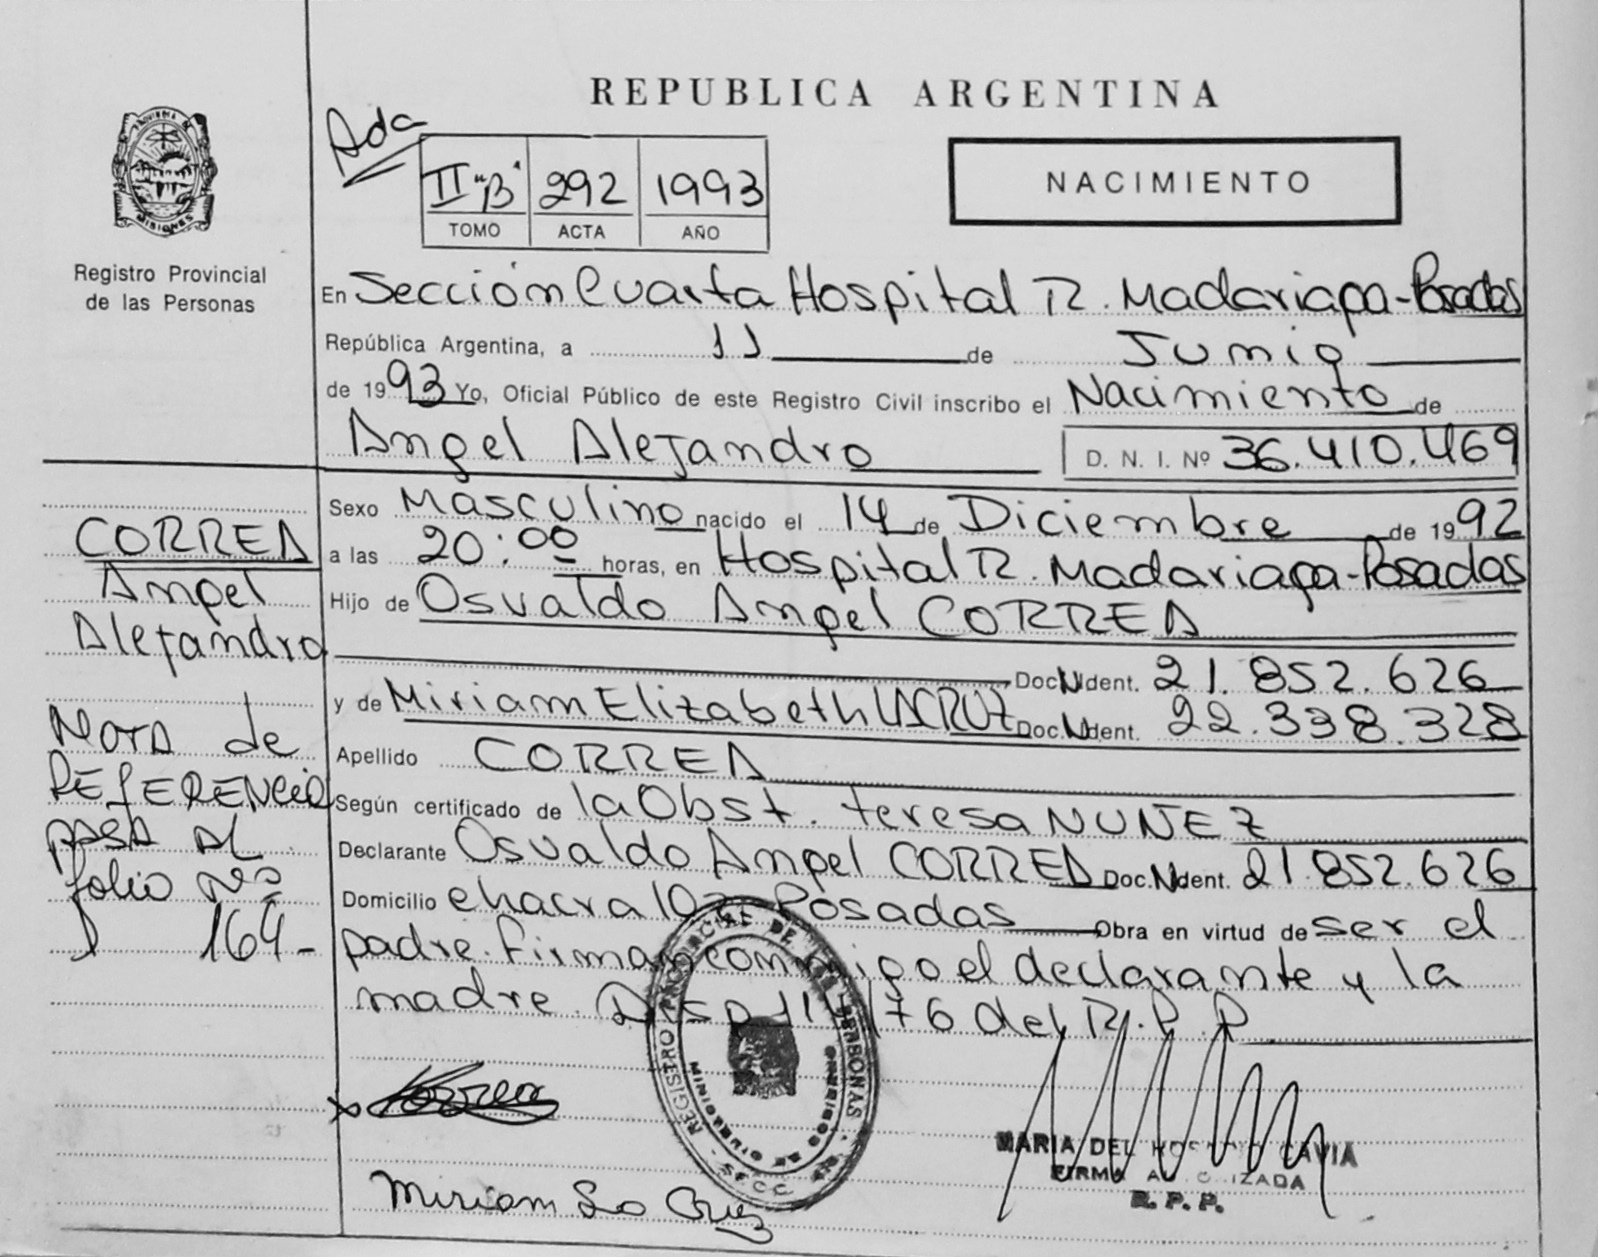 REPUBLICA ARGENTINA
Ada
II "B" 292 1993
TOMO ACTA AÑO
NACIMIENTO
PROVINCIA DE
MISIONES
Registro Provincial
de las Personas
En Sección Cuarta Hospital R. Madariaga - Posadas
República Argentina, a 11 de Junio
de 1993 Yo, Oficial Público de este Registro Civil inscribo el Nacimiento de
Angel Alejandro D. N. I. Nº 36.410.469
Sexo Masculino nacido el 14 de Diciembre de 1992
a las 20:00 horas, en Hospital R. Madariaga - Posadas
Hijo de Osvaldo Angel CORREA
Doc. N Ident. 21.852.626
y de Miriam Elizabeth LACRUZ Doc. N Ident. 22.338.328
Apellido CORREA
Según certificado de la Obst. teresa NUÑEZ
Declarante Osvaldo Angel CORREA Doc. N Ident. 21.852.626
Domicilio chacra 102 - Posadas Obra en virtud de ser el
padre. firman conmigo el declarante y la
madre. Disp 11/76 del R.P.P
CORREA
Angel
Alejandro
NOTA de
REFERENCIA
PASA AL
folio Nº
164 -
Correa
REGISTRO PROVINCIAL DE LAS PERSONAS
MINISTERIO DE GOBIERNO
Miriam La Cruz
MARIA DEL ROSARIO CAVIA
FIRMA AUTORIZADA
R. P. P.